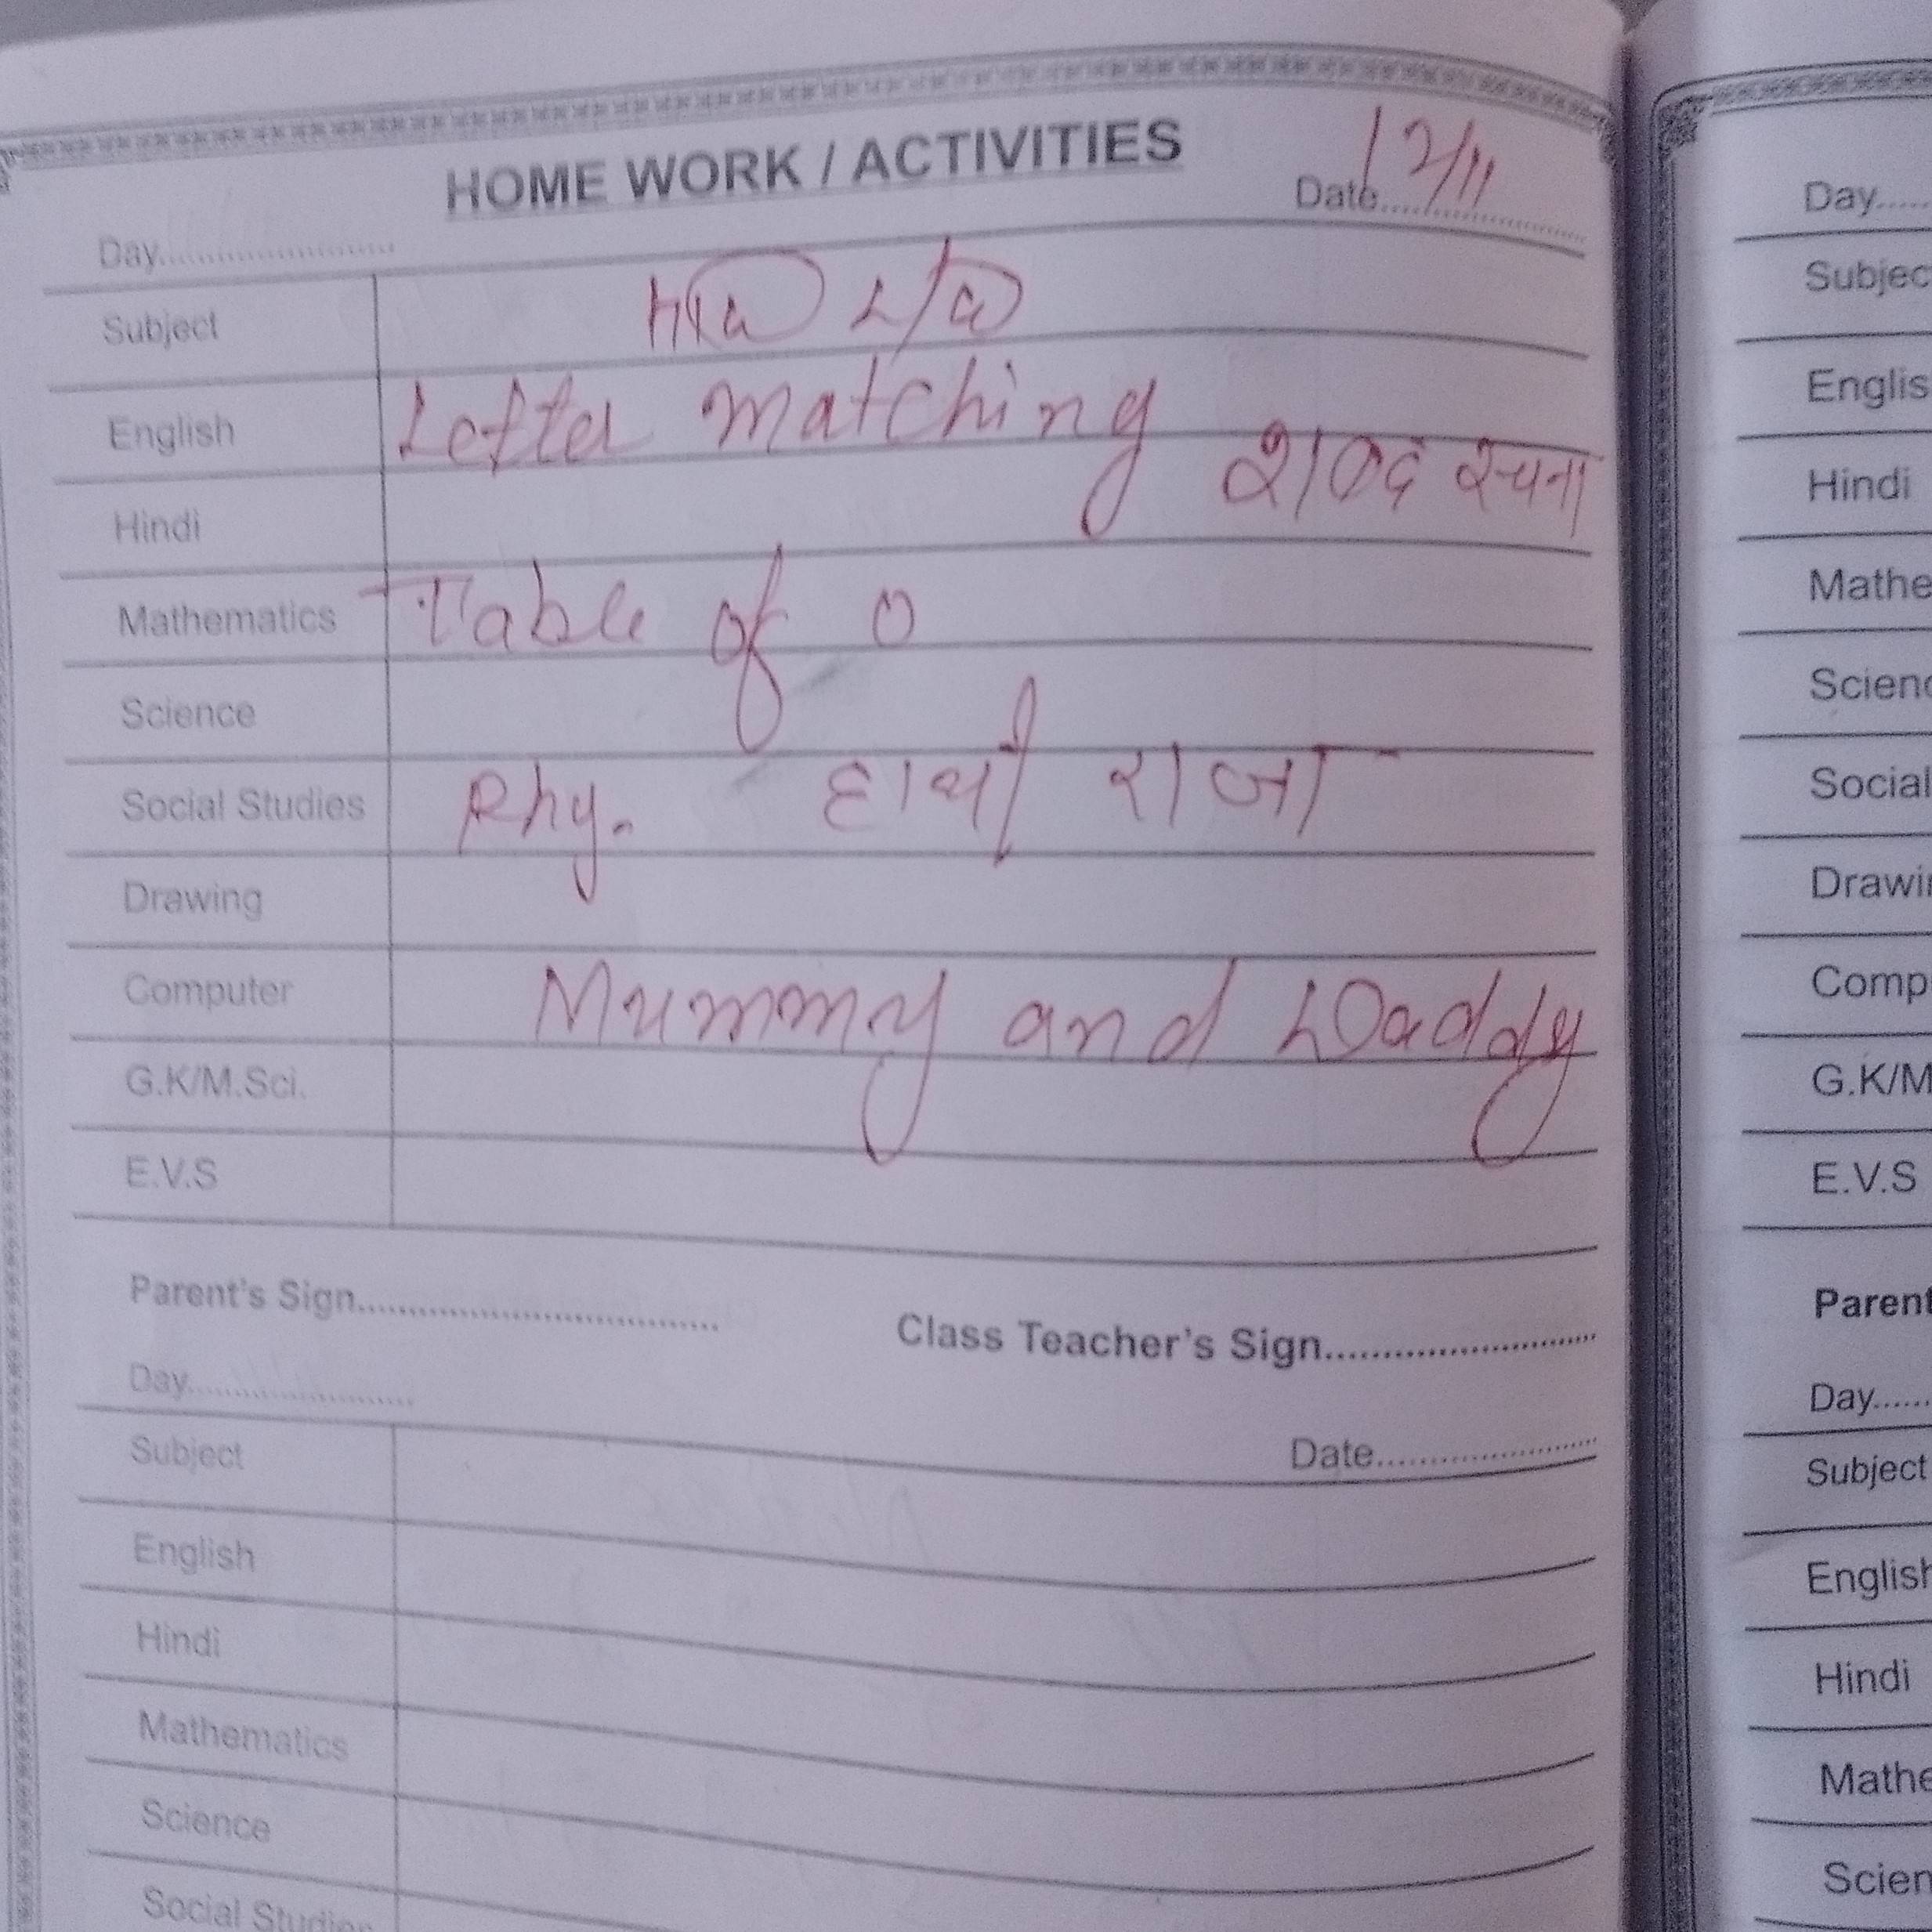 HOME WORK / ACTIVITIES
Day.................... Date.................... 12/11
Subject H/W L/W
English Letter matching
शब्द रचना
Hindi
Mathematics Table of 0
Science
Social Studies Rhy. हाथी राजा
Drawing
Computer Mummy and Daddy
G.K/M.Sci.
E.V.S
Parent's Sign....................
Class Teacher's Sign....................
Day....................
Date....................
Subject
English
Hindi
Mathematics
Science
Social Studies
Day.....
Subjec
Englis
Hindi
Mathe
Scienc
Social
Drawi
Comp
G.K/M
E.V.S
Parent
Day.....
Subject
English
Hindi
Mathe
Scien